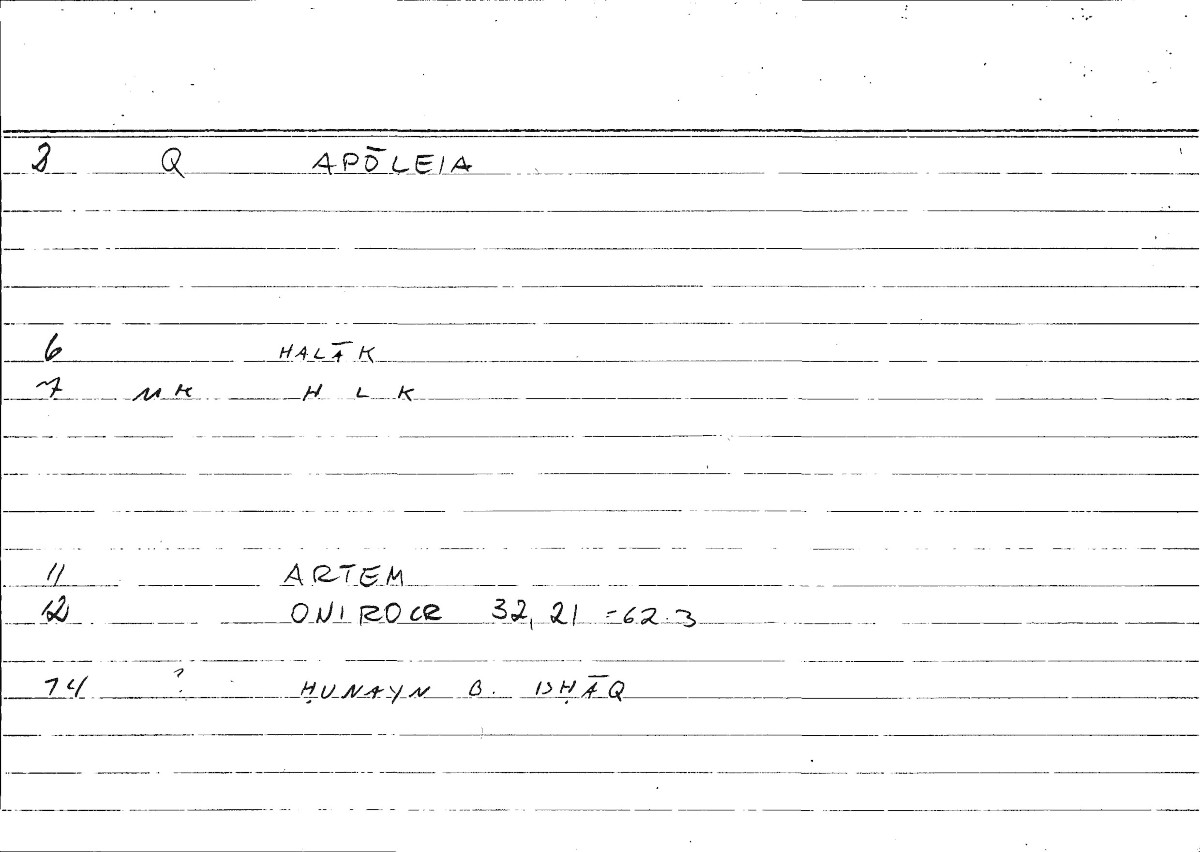 2 Q APŌLEIA
6 HALĀK
7 MK H L K
11 ARTEM
12 ONIROCR 32, 21 = 62.3
14 ? ḤUNAYN B. ISḤĀQ